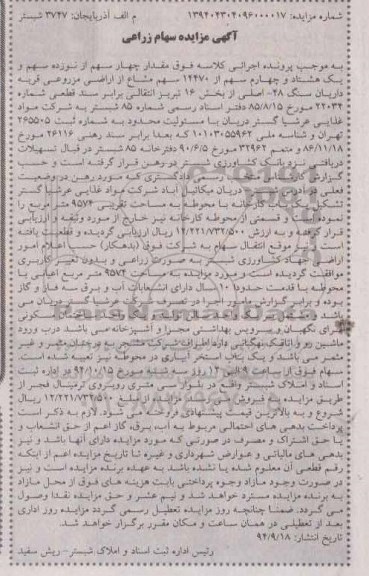 شماره مزایده: ۱۳۹۴۰۴۳۰۴۰۹۶۰۰۰۰۱۷ م الف آذربایجان: ۳۷۴۷ شبستر
آگهی مزایده سهام زراعی
به موجب پرونده اجرائی کلاسه فوق مقدار چهار سهم از نوزده سهم و
یک هشتاد و چهارم سهم از ۱۴۴۷۰ سهم مشاع از اراضی مزروعی قریه
داریان سنگ ۲۸- اصلی از بخش ۱۶ تبریز انتقالی برابر سند قطعی شماره
۲۲۰۳۴ مورخ ۸۵/۸/۱۵ دفتر اسناد رسمی شماره ۸۵ شبستر به شرکت مواد
غذایی عرشیا گستر دریان با مسئولیت محدود به شماره ثبت ۲۶۵۵۰۵
تهران و شناسه ملی ۱۰۱۰۳۰۵۵۹۶۲ که بعدا برابر سند رهنی ۲۶۱۱۶ مورخ
۸۶/۱۱/۱۸ و متمم ۳۲۹۶۲ مورخ ۹۰/۶/۵ دفترخانه ۸۵ شبستر در قبال تسهیلات
دریافتی نزد بانک کشاورزی شبستر در رهن قرار گرفته است و حسب
گزارش کارشناس رسمی دادگستری که مورد رهن در وضعیت
فعلی در آدرس دریان میکائیل آباد شرکت مواد غذایی عرشیا گستر
تشکیل یک باب کارخانه با محوطه به مساحت تقریبی ۹۵۷۴ متر مربع را
نموده و قسمتی از محوطه کارخانه نیز خارج از مورد وثیقه و ارزیابی
قرار گرفته و به ارزش ۱۲/۲۲۱/۷۳۲/۵۰۰ ریال ارزیابی گردیده و قطعات یافته
است و در موقع انتقال سهام به شرکت فوق (بدهکار) حسب اعلام امور
اراضی جهاد کشاورزی به صورت زراعی و بدون تغییر کاربری
موافقت گردیده است و مورد مزایده به مساحت ۹۵۷۴ متر مربع اعیانی با
محوطه با قدمت حدودا ۱۰ سال دارای انشعابات آب و برق سه فاز و گاز
بوده و برابر گزارش مامور اجرا در تصرف شرکت عرشیا گستر دریان می
برای نگهبان و سرویس بهداشتی مجزا و آشپزخانه می باشد درب ورود
ماشین رو و اتاقک نگهبانی دارد اطراف شرکت مشجر به درختان مثمر و غیر
مثمر می باشد و یک باب استخر آبیاری در محوطه نیز تعبیه شده است.
سهام فوق از ساعت ۹ الی ۱۲ روز سه شنبه مورخ ۹۴/۱۰/۱۵ در اداره ثبت
اسناد و املاک شبستر واقع در بلوار سی متری روبروی ترمینال فجر از
طریق مزایده به فروش می رسد. مزایده از مبلغ ۱۲/۲۲۱/۷۳۲/۵۰۰ ریال
شروع و به بالاترین قیمت پیشنهادی فروخته می شود. لازم به ذکر است
پرداخت بدهی های احتمالی مربوط به آب، برق، گاز اعم از حق انشعاب و
یا حق اشتراک و مصرف در صورتی که مورد مزایده دارای آنها باشد و نیز
بدهی های مالیاتی و عوارض شهرداری و غیره تا تاریخ مزایده اعم از اینکه
رقم قطعی آن معلوم شده یا نشده باشد به عهده برنده مزایده است و نیز
در صورت وجود مازاد وجوه پرداختی بابت هزینه های فوق از محل مازاد
به برنده مزایده مسترد خواهد شد و نیم عشر و حق مزایده نقدا وصول
می گردد. ضمنا چنانچه روز مزایده تعطیل رسمی گردد مزایده روز اداری
بعد از تعطیلی در همان ساعت و مکان مقرر برگزار خواهد شد.
تاریخ انتشار: ۹۴/۹/۱۸
رئیس اداره ثبت اسناد و املاک شبستر- ریش سفید